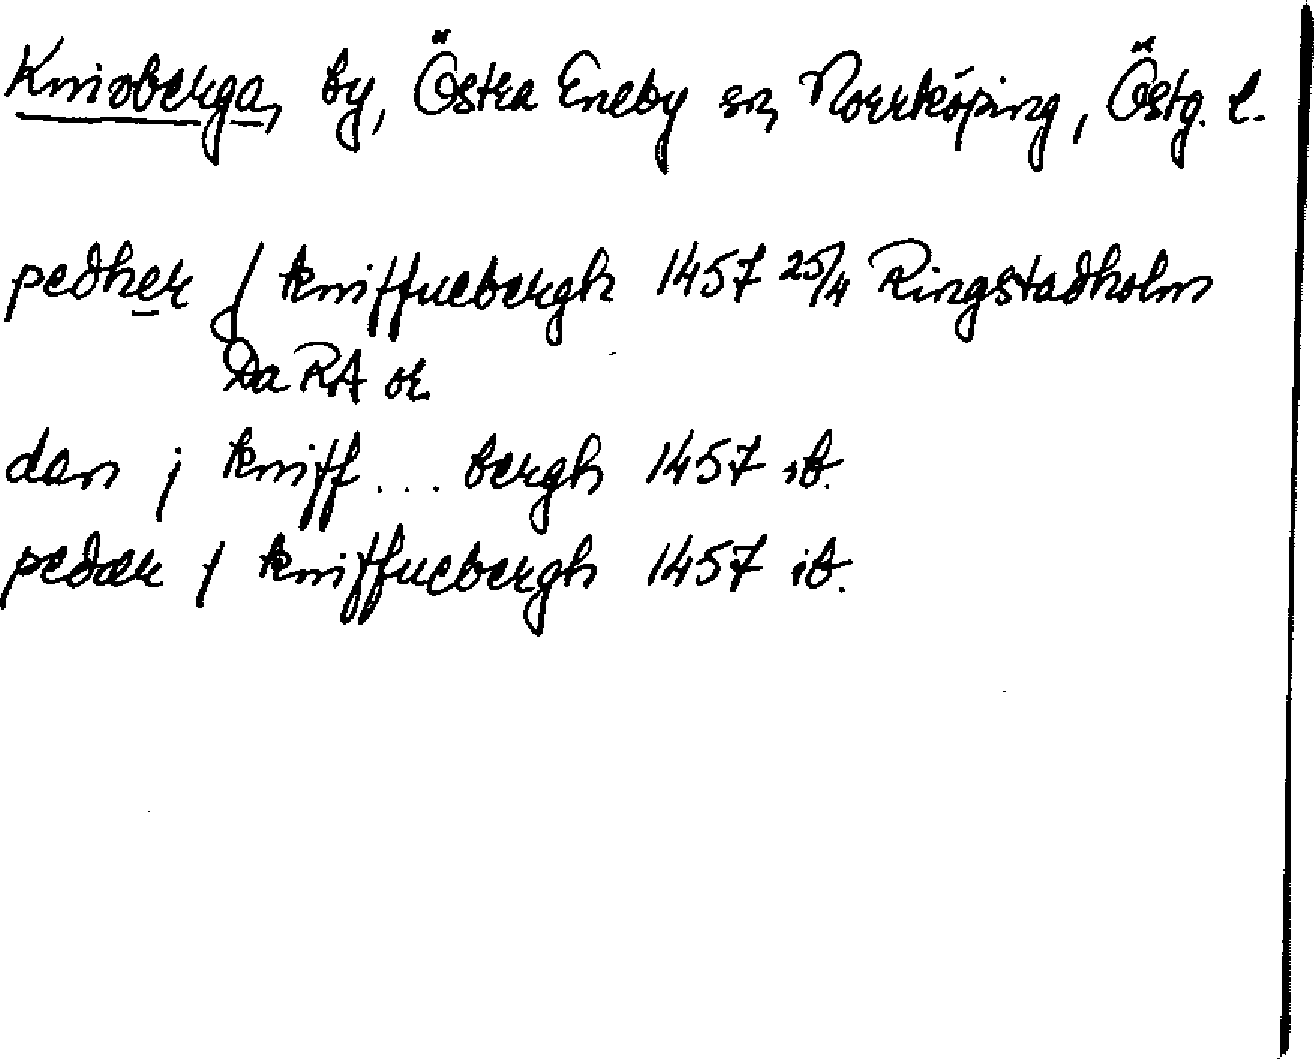 Knivberga, by, Östra Eneby sn, Norrköping, Östg. l.
pedher j kniffuebergh 1457 25/4 Ringstadholm
Da RA or.
den j kniff... bergh 1457 ib.
pedær j kniffuebergh 1457 ib.